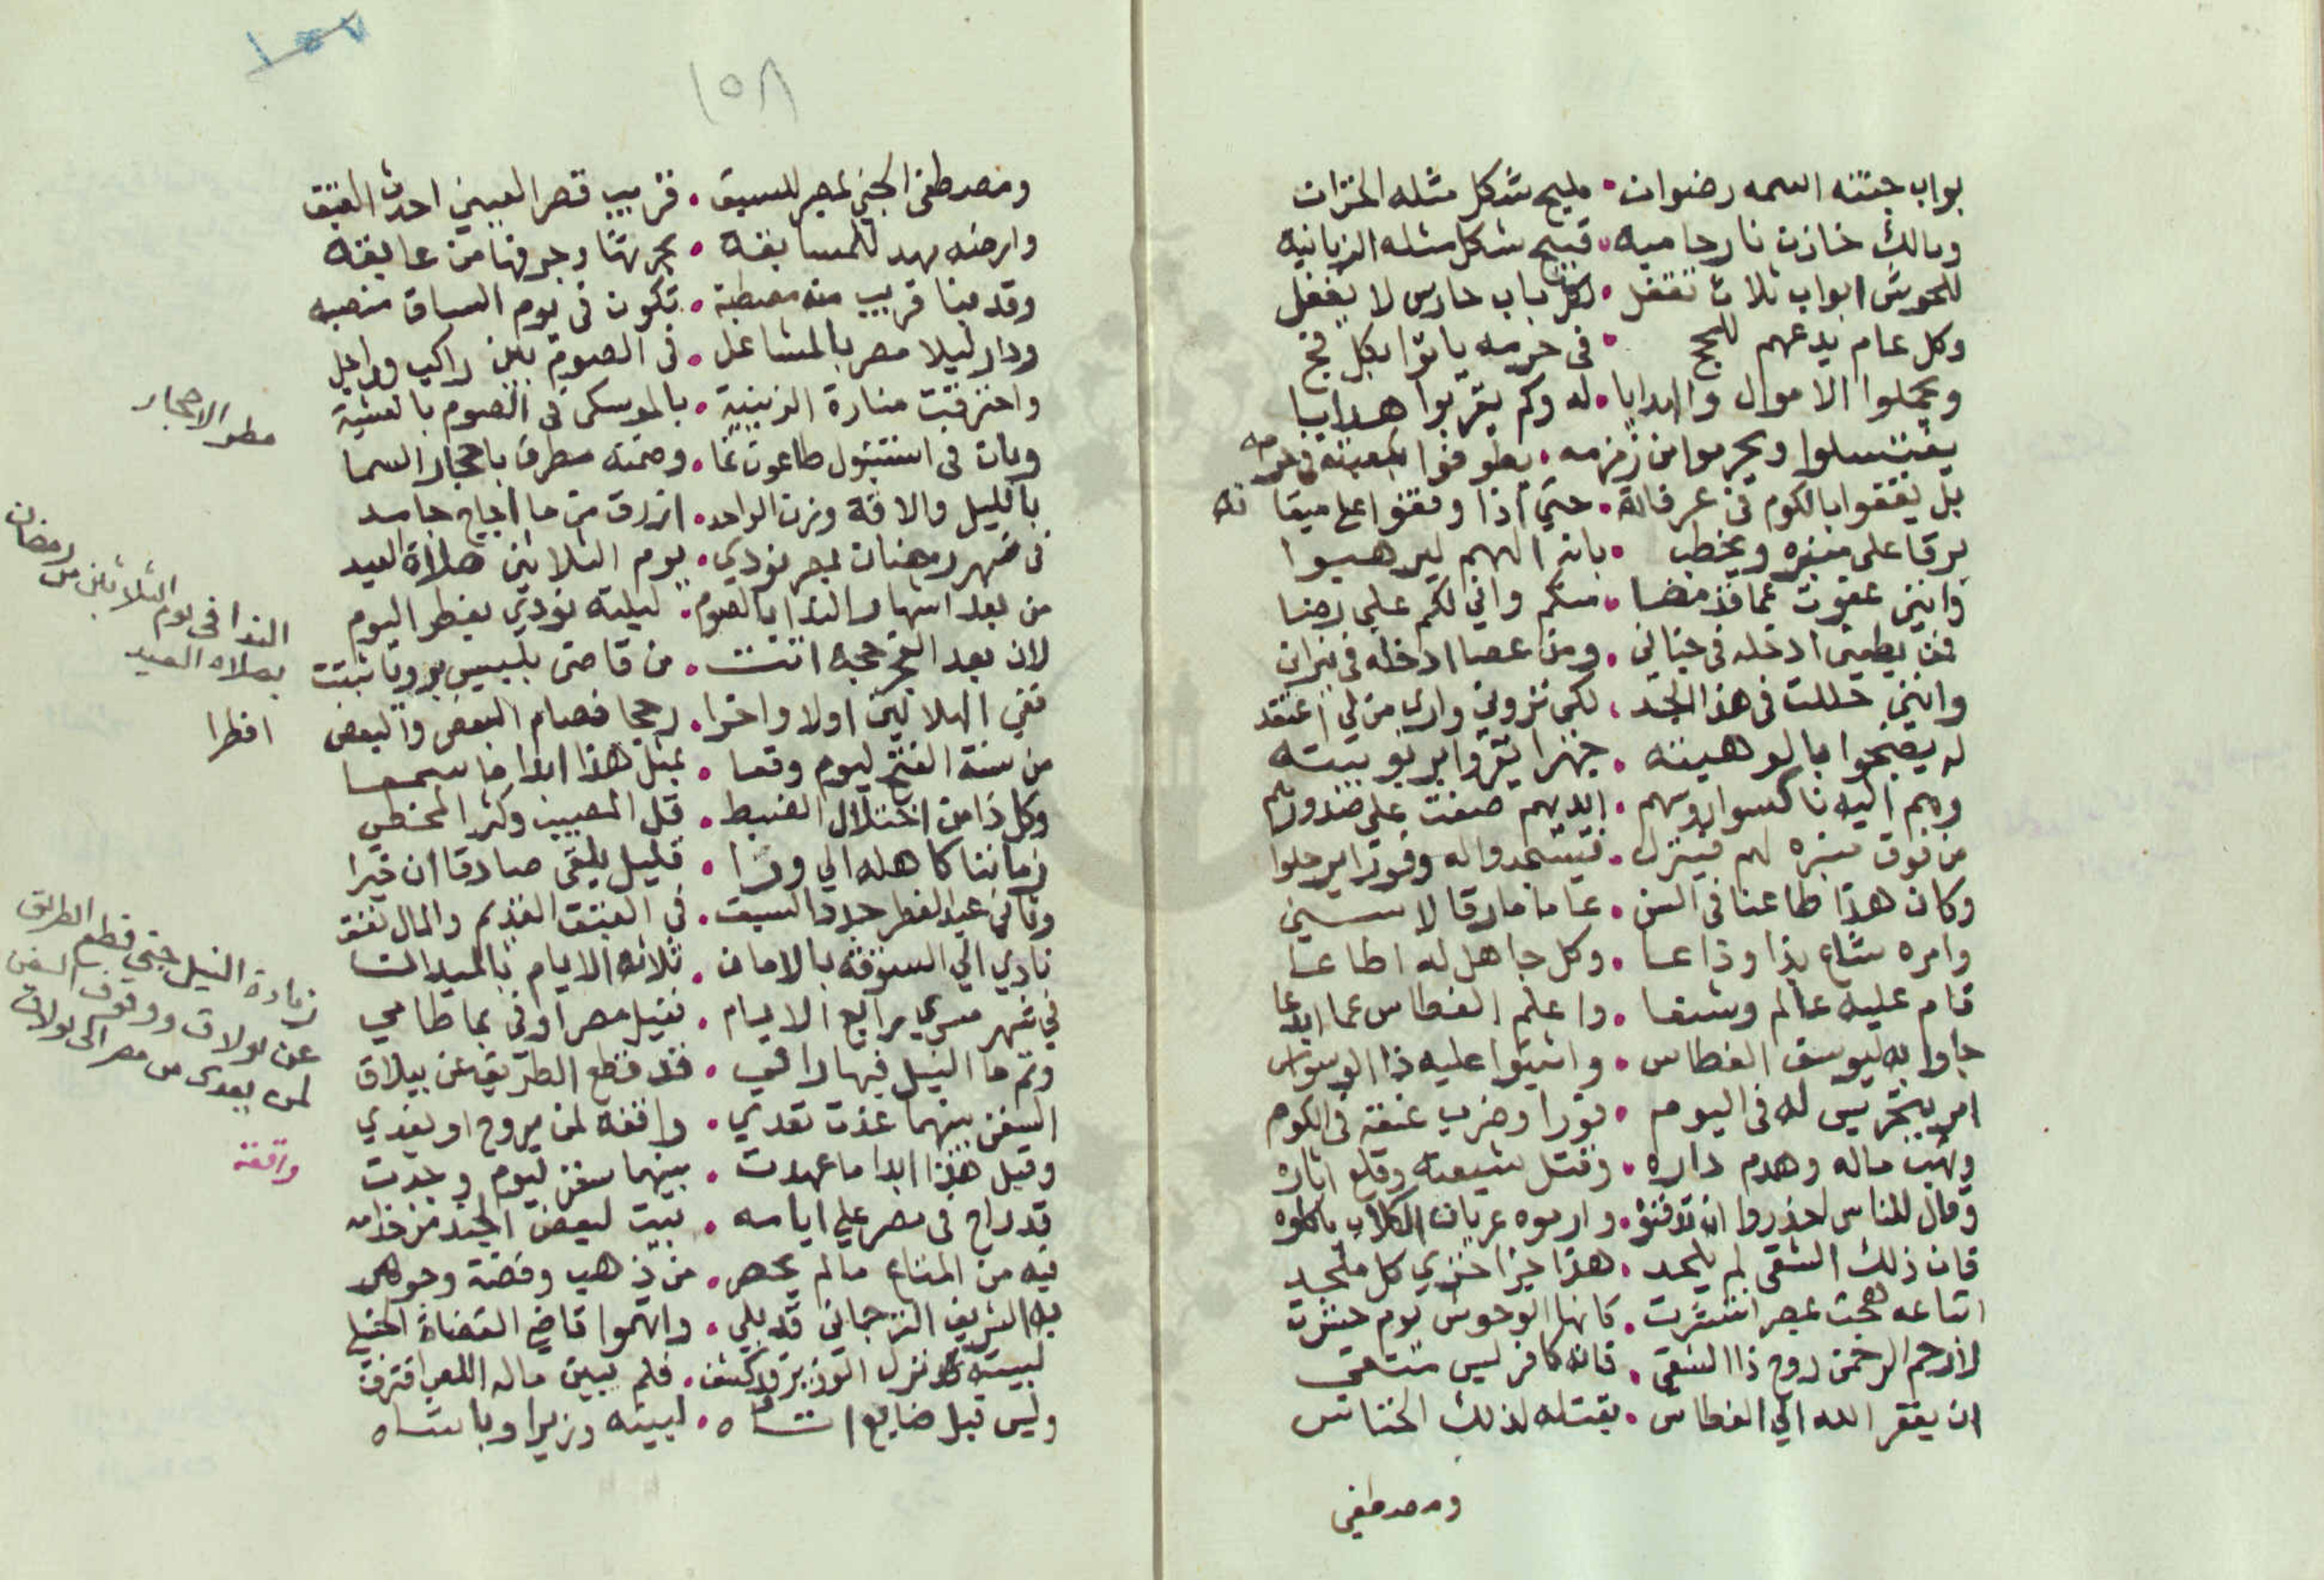 بواب جنته اسمه رضوان • مليح شكل مثله الخزان
ومالك خازن نار حاميه • قبيح شكل مثله الزبانيه
للحوش ابواب ثلاث تقفل • لكل باب حارس لا يغفل
وكل عام يدعهم للحج • في حرمه ياتوا بكل فج
ويحملوا الاموال والهدايا • له وكم يقربوا هدايا
يغتسلوا ويحرموا من زمزمه • يطوفوا بكعبته في حرمه
بل يقفوا بالكوم في عرفاته • حتي اذا وقفوا علي ميقاته
يرقا علي منبره ويخطب • بانه الههم ليرهبوا
وانني عفوت عما قد مضا • منكم واني لكم علي رضا
فمن يطعني ادخله في جناني • ومن عصا ادخله في نيران
وانني حللت في هذا الجسد • لكي تروني واري من لي اعتقد
له يضجوا بالوهيته • جهرا يقروا بربوبيته
وهم اليه ناكسوا روسهم • ايديهم صفت علي صدورهم
من فوق منبره لهم فينزل • فيسجدوا له وفورا يرحلوا
وكان هذا طاعنا في السن • عاما مارقا لا سني
وامره شاع بذا وذاعا • وكل جاهل له اطاعا
قام عليه عالم وشنعا • واعلم الغطاس عما ابدعا
جاوا به ليوسف الغطاس • واثبتوا عليه ذا الوسواس
امر بتجريس له في اليوم • فورا وضرب عنقه في الكوم
ونهب ماله وهدم داره • وقتل شيعته وقلع اثاره
وقال للناس احذروا ان تدفنوا • وارموه عريان الكلاب ياكلوه
فان ذلك الشقي لم يلحد • هذا جزا خزي كل ملحد
اتباعه هجت بمصر انتشرت • كانها الوحوش يوم حشرت
لا رحم الرحمن روح ذا الشقي • فانه كافر ليس متقي
ان يغفر الله الي الغطاس • بقتله لذلك الخناس
ومصطفي
١٥٨
ومصطفي الجني بمصر للسبق • قريب قصر العيني احدث الفتق
وارضه مهد للمسابقه • بحريتها وجرفها من عايقه
وقد بنا قريب منه مصطبة • تكون في يوم السباق منصبه
ودار ليلا مصر بالمشاعل • في الصوم بين راكب وراجل
واحترقت منارة الزينية • بالموسكي في الصوم بالعشية
وبان في استنبول طاعون نما • وضمنه مطرت باحجار السما
بالليل والاقة وزن الواحد • ازرق من ما اجاج جامد
في شهر رمضان بمصر نودي • يوم الثلاثين صلاة العيد
من بعد اشهار الندا بالصوم • ليلته نودي بفطر اليوم
لان بعد الفجر حجه اتت • من قاضي بلبيس بروياثبتت
نفي الهلالين اولا واخرا • رحجا فصام البعض والبعض افطرا
من سنة الفتح ليوم وقعا • بمثل هذا ابدا ما سمعا
وكل ذا من اختلال الضبط • قل المصيب وكثر المخطي
زماننا كاهله الي ورا • قليل يلقي صادقا ان خبرا
وثاني عيد الفطر جدد السبق • في الفتق القديم والمال نفق
نادي الي السوقه بالامان • ثلاثة الايام بالميدان
في شهر مسري برابع الايام • نيل مصر اوفي بما طامي
وتم ما النيل فيها راقي • قد قطع الطريق عن بيلاق
السفن بينهما غدت تعدي • واقفه لمن يروح او يغدي
وقبل هذا ابدا ما عهدت • بينهما سفن ليوم وجدت
قد راح في مصر علي ايامه • بيت لبعض الجند من خدامه
فيه من المتاع مالم يحصر • من ذهب وفضة وجوهر
به الشريف الترجماني قد بلي • واتهموا قاضي القضاة الحنبلي
لبيته نزل الوزير قد كشف • فلم يبين ماله اللص اقترف
وليس قبل ضايع انشاه • لبيته وزيرا وباشاه
مطر الاحجار
الندا في يوم الثلاثين من رمضان
بصلاه العيد
زيادة النيل حتي قطع الطريق
عن بولاق ووقوف السفن
لمن يعدى من مصر الى بولاق
واقفه